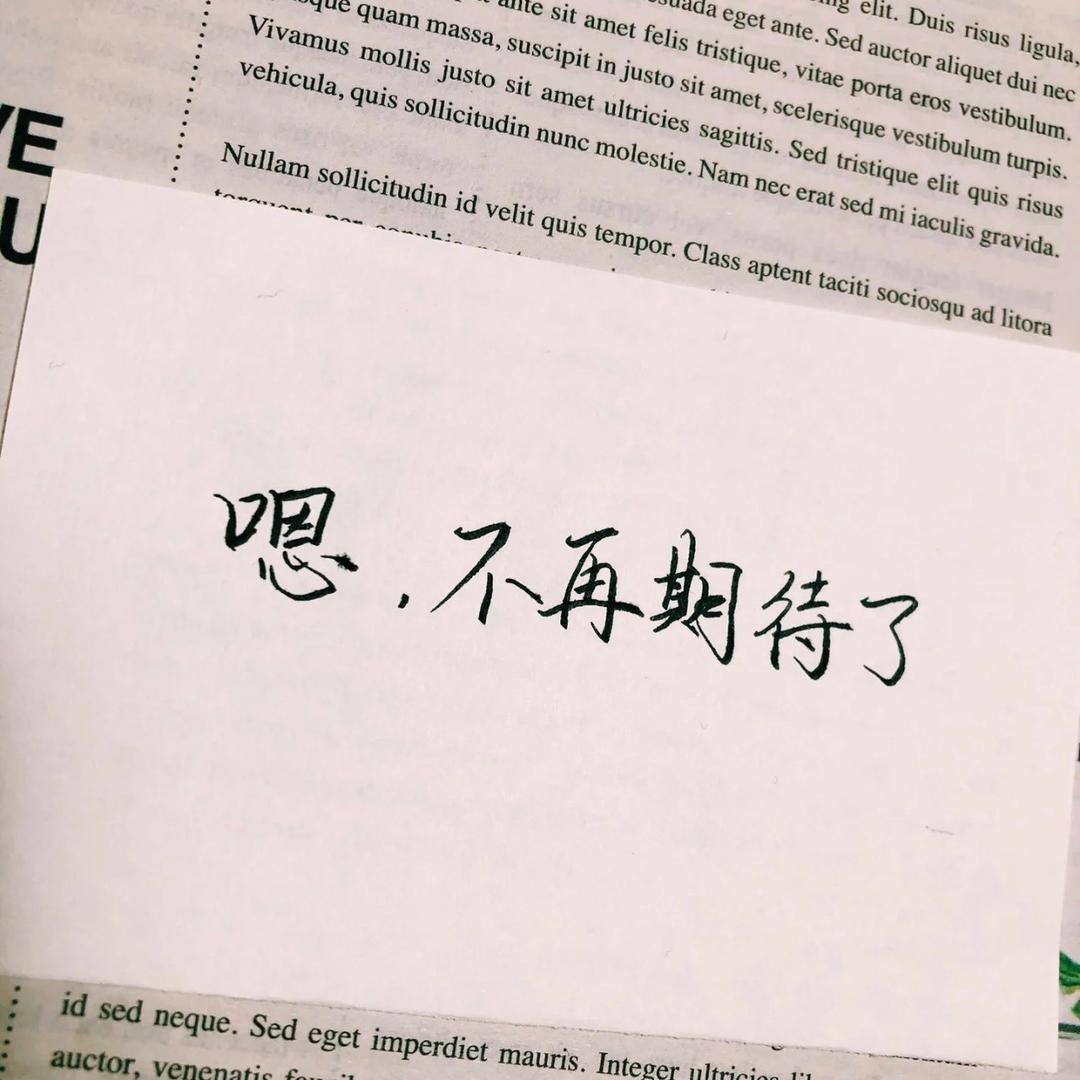 elit. Duis risus ligula,
ante sit amet felis tristique, vitae porta eros vestibulum.
eget ante. Sed auctor aliquet dui nec
quam massa, suscipit in justo sit amet, scelerisque vestibulum turpis.
Vivamus mollis justo sit amet ultricies sagittis. Sed tristique elit quis risus
vehicula, quis sollicitudin nunc molestie. Nam nec erat sed mi iaculis gravida.
Nullam sollicitudin id velit quis tempor. Class aptent taciti sociosqu ad litora
VE
U
嗯，不再期待了
id sed neque. Sed eget imperdiet mauris. Integer ultricies
auctor, venenatis